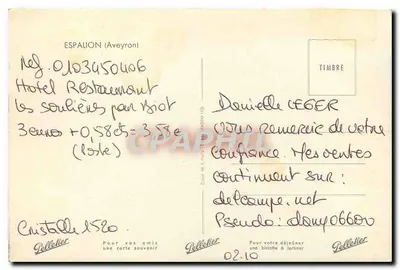 ESPALION (Aveyron)
Ref. 0103450406
Hotel Restaurant
les soulières par Biot
3 euros + 0,58cts = 3,58e
(Poste)
Cristelle 1520
Pelletier
Pour vos amis
une carte souvenir
TIMBRE
Danielle LEGER
vous remercie de votre
confiance. Mes ventes
continuent sur :
delcampe.net
Pseudo : dany06600
02.10
Pelletier
Pour votre déjeuner
une biscotte à tartiner
Pelletier
CPAPHIL